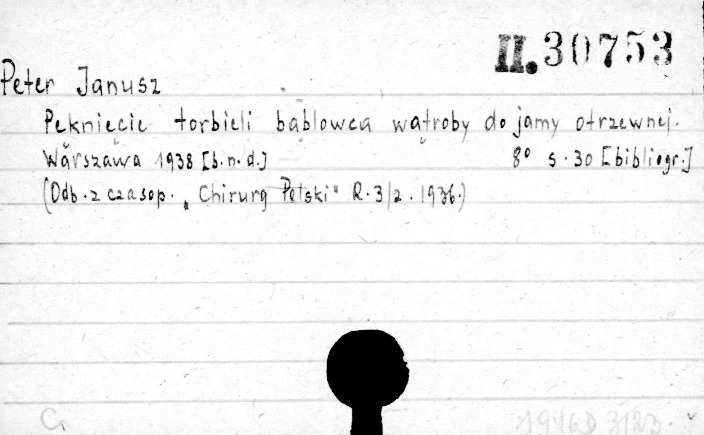 II.30753
Peter Janusz
Pęknięcie torbieli bąblowca wątroby do jamy otrzewnej.
Warszawa 1938 [b.n.d.] 8° s.30 [bibliogr.]
(Odb. z czasop. „Chirurg Polski" R.3/2. 1936.)
C. 1946 D 3123.